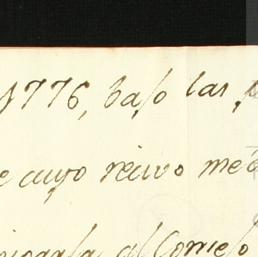 1776, bajo las
cuyo recivo me
al Consejo